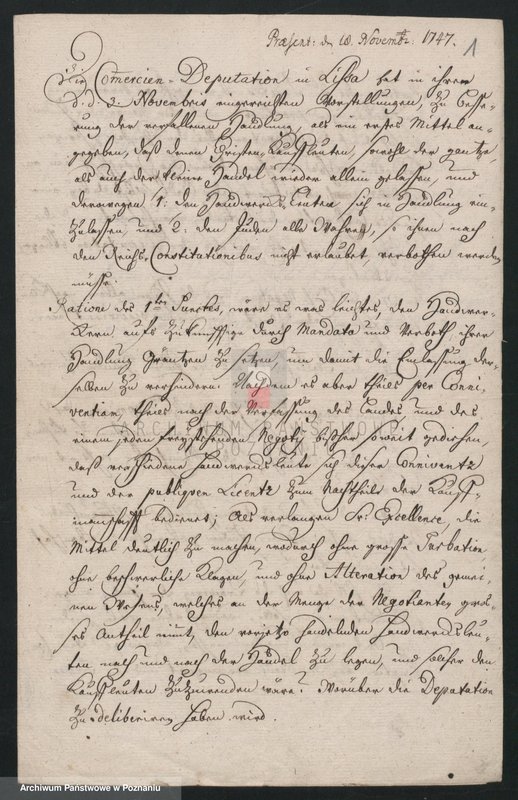 Præsent: d. 10. Novembr: 1747.
1
Die Commercien-Deputation in Lissa hat in ihrem
d. d. 2. Novembris eingereichten Vorstellungen, zu Besse-
rung der verfallenen Handlung, als ein erstes Mittel an-
gegeben, daß denen Christen-Kauffleuten, sowohl der gantze,
als auch der kleine Handel wieder allein gelassen, und
derowegen 1: den Handwercks-Leuten sich in Handlung ein-
zulassen, und 2: den Juden alle Wahren, so ihnen nach
den Reichs-Constitutionibus nicht erlaubet, verbothen werden
müsse.
Ratione des 1ten Punctes, wäre es was leichtes, den Handwer-
kern aufs zukünfftige durch Mandata und Verboth ihrer
Handlung Gräntzen zu setzen, um damit die Einlassung der-
selben zu verhindern. Nachdem es aber theils per Conni-
ventiam, theils nach der Verfassung des Landes und des
einem jeden freystehenden Negotij bißher soweit gediehen,
daß verschiedene Handwercksleute sich dieser Conniventz
und der publiquen Licentz zum Nachtheile der Kauff-
mannschafft bedienet; Als verlangen Sr. Excellence, die
Mittel deutlich zu machen, wodurch ohne grosse Turbation
ohne beschwerliche Klagen, und ohne Alteration des gemei-
nen Wesens, welches an der Menge der Negotianten gros-
ses Antheil nimt, den vorjetzo handelnden Handwercksleu-
ten nach und nach der Handel zu legen, und solcher den
Kauffleuten zuzuwenden wäre? Worüber die Deputation
zu deliberiren haben wird.
ARCHIWUM PAŃSTWOWE
W POZNANIU
Archiwum Państwowe w Poznaniu